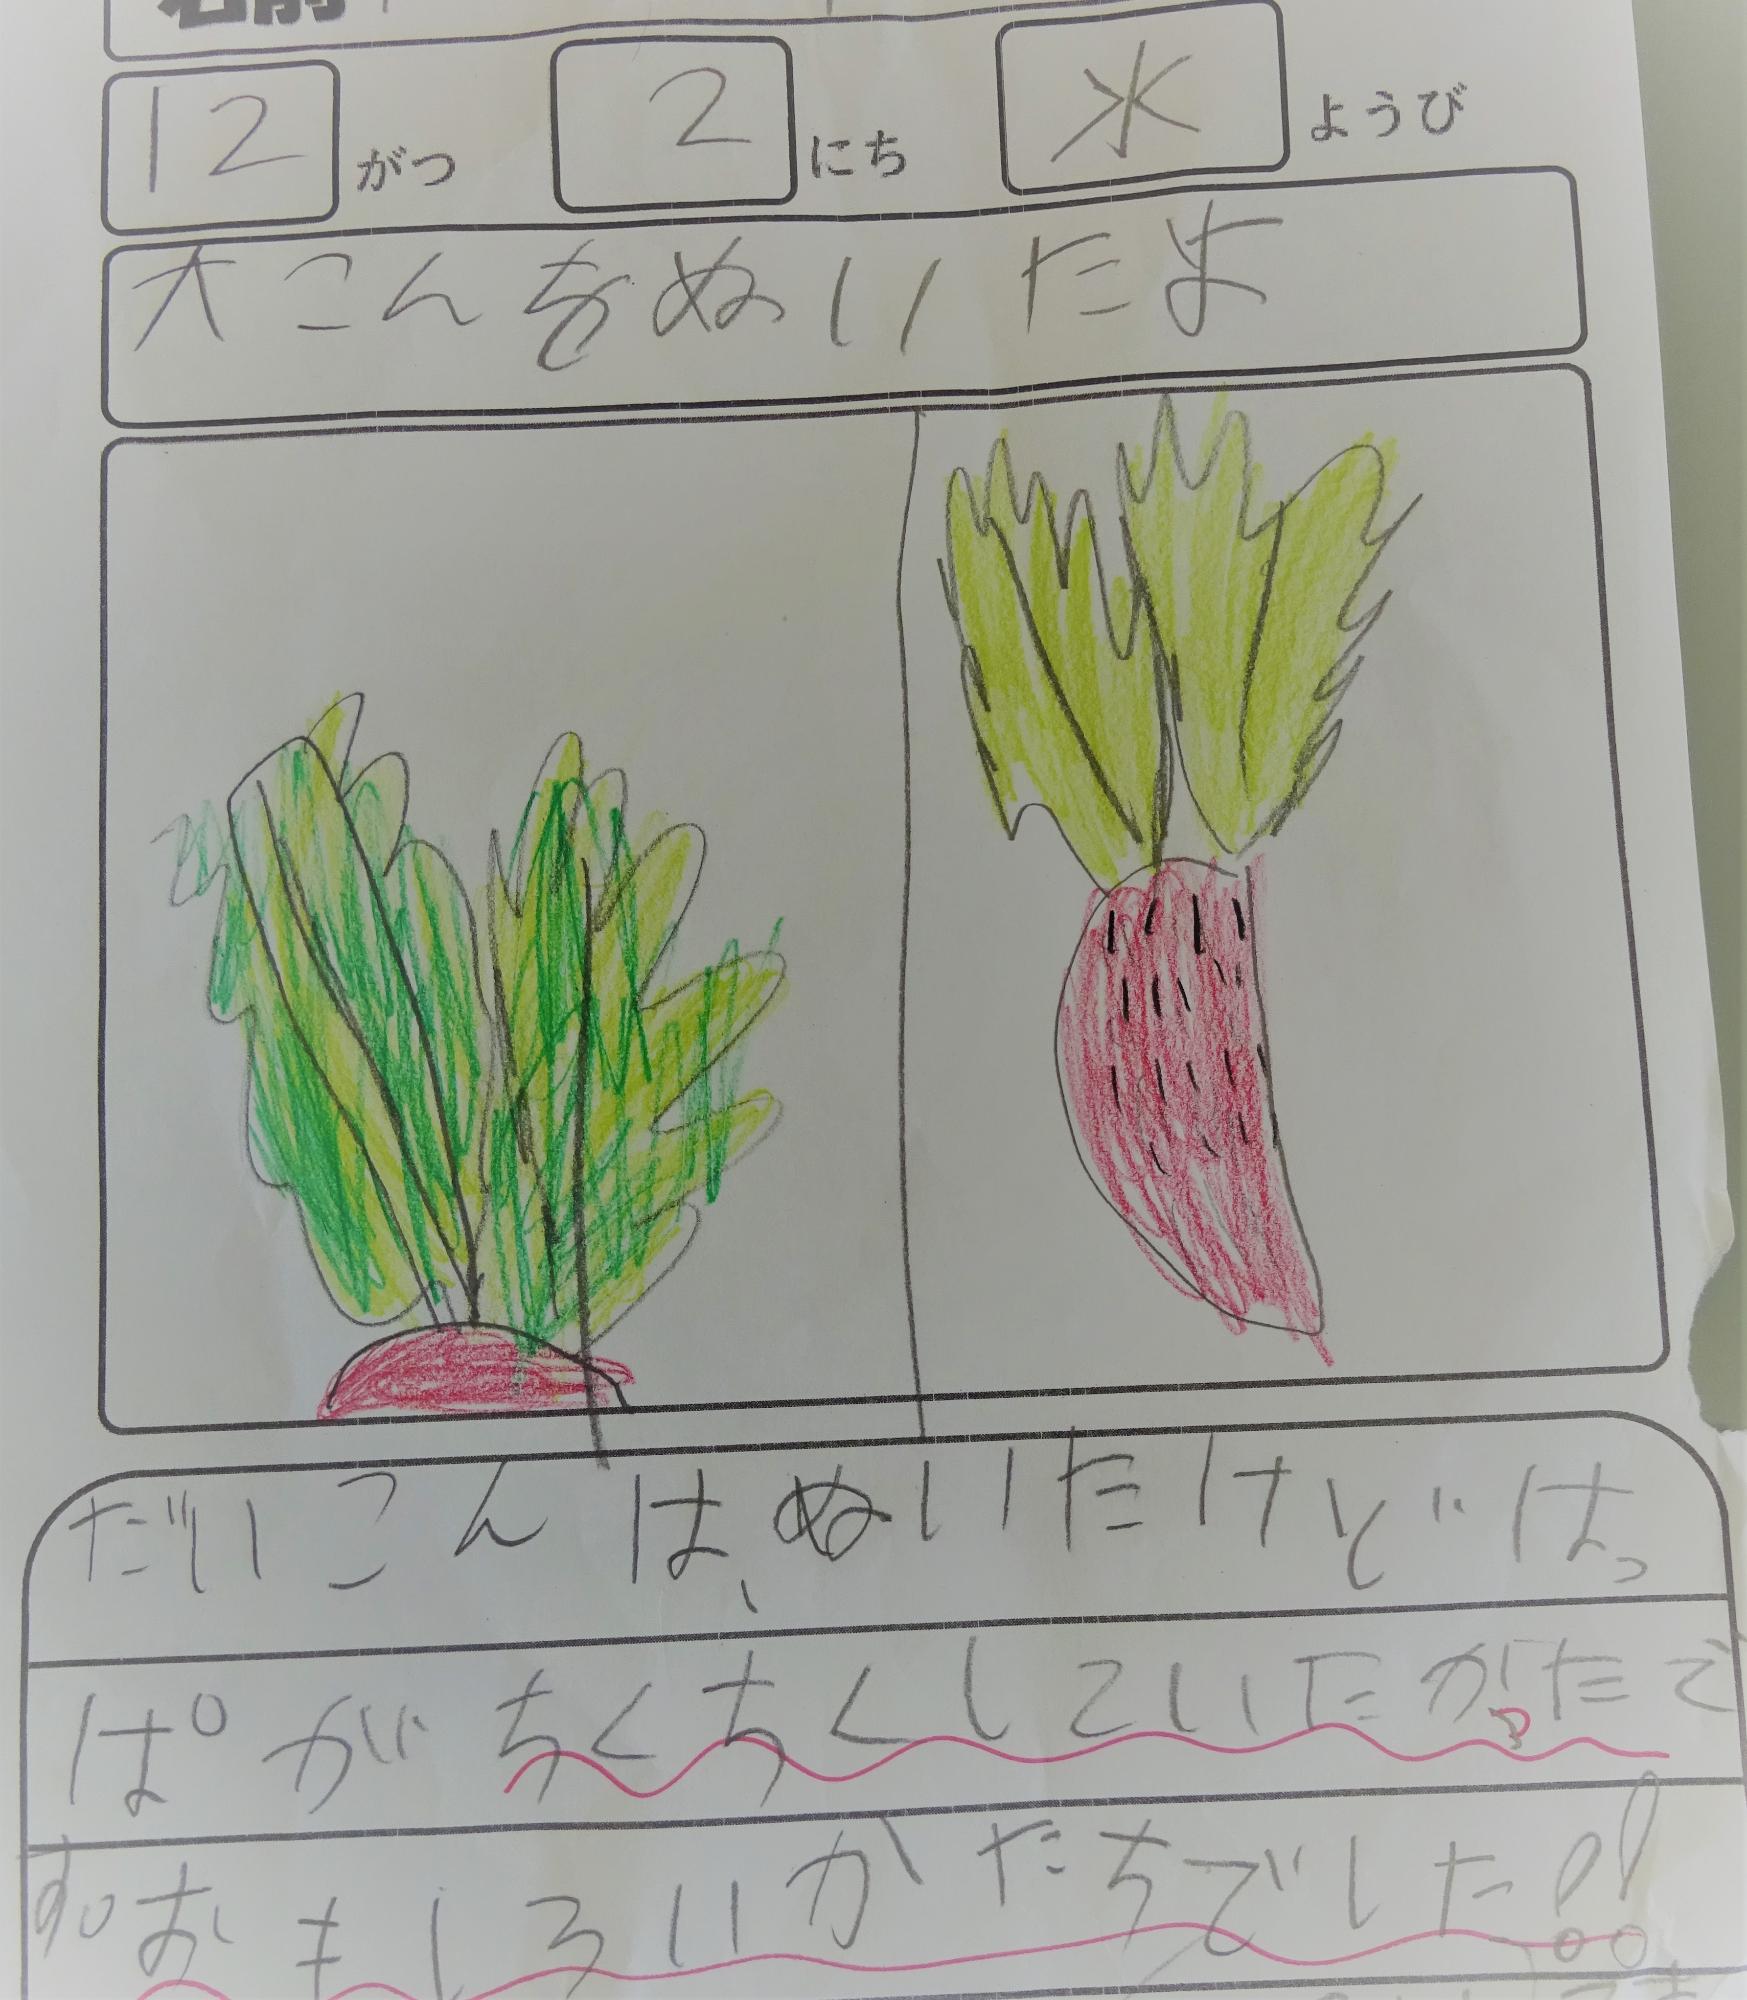 名前
12 がつ 2 にち 水 ようび
大こんをぬいたよ
だいこんは、ぬいたけどはっ
ぱがちくちくしていたがったで
す。おもしろいかたちでした!!